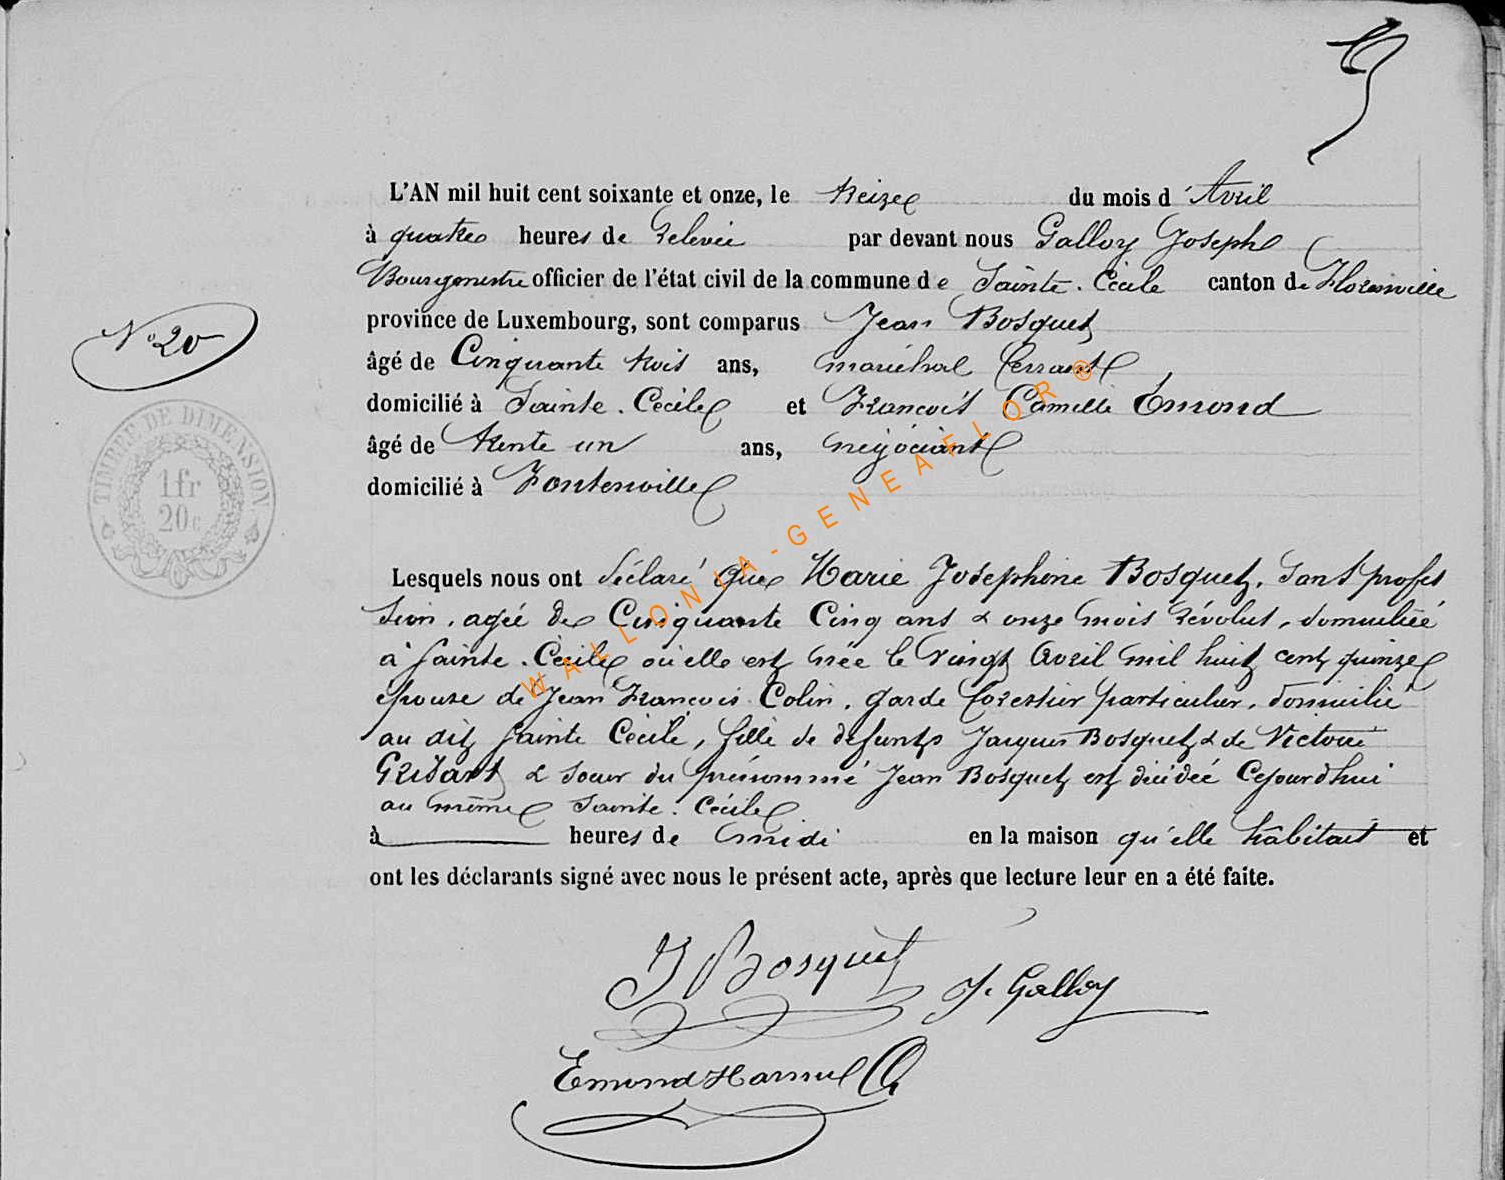 L'AN mil huit cent soixante et onze, le treize du mois d'Avril
à quatre heures de relevée par devant nous Galloy Joseph
Bourgmestre officier de l'état civil de la commune de Sainte-Cécile canton de Florenville
province de Luxembourg, sont comparus Jean Bosquet
N° 20
âgé de Cinquante trois ans, maréchal ferrant
domicilié à Sainte-Cécile et François Camille Emond
âgé de trente un ans, négociant
domicilié à Fontenoille
TIMBRE DE DIMENSION
1 fr
20 c
Lesquels nous ont déclaré que Marie Josephine Bosquet, sans profes
sion, agée de Cinquante Cinq ans & onze mois révolus, domiciliée
à Sainte-Cécile où elle est née le vingt Avril mil huit cent quinze
épouse de Jean François Colin, garde forestier particulier, domicilié
au dit Sainte Cécile, fille de défunts Jacques Bosquet & de Victoire
Gridart & soeur du prénommé Jean Bosquet est décédée Cejourd'hui
au même Sainte-Cécile
à heures de midi en la maison qu'elle habitait et
ont les déclarants signé avec nous le présent acte, après que lecture leur en a été faite.
J Bosquet J. Galloy
Emond Hamul
WALLONIA-GENEAFLOR ®